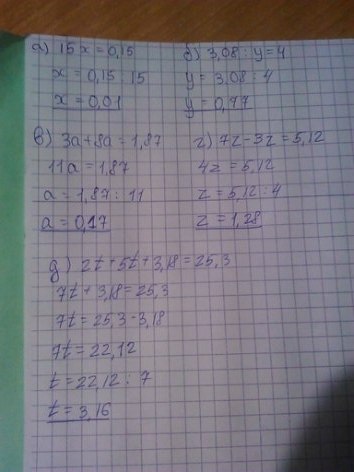 а) 15x = 0,15
x = 0,15 : 15
x = 0,01
б) 3,08 : y = 4
y = 3,08 : 4
y = 0,77
в) 3a + 8a = 1,87
11a = 1,87
a = 1,87 : 11
a = 0,17
г) 7z - 3z = 5,12
4z = 5,12
z = 5,12 : 4
z = 1,28
д) 2t + 5t + 3,18 = 25,3
7t + 3,18 = 25,3
7t = 25,3 - 3,18
7t = 22,12
t = 22,12 : 7
t = 3,16